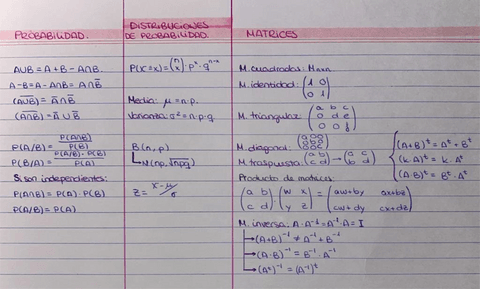 PROBABILIDAD.
A∪B = A + B - A∩B.
A - B = A - A∩B = A∩B̅
(A̅∪̅B̅) = A̅∩B̅
(A̅∩̅B̅) = A̅∪B̅
P(A/B) = P(A∩B)/P(B)
P(B/A) = P(A/B)·P(B)/P(A)
Si son independientes:
P(A∩B) = P(A)·P(B)
P(A/B) = P(A)
DISTRIBUCIONES
DE PROBABILIDAD.
P(X=x) = (n x)·pˣ·qⁿ⁻ˣ
Media: μ = n·p.
Varianza: σ² = n·p·q
B(n, p)
↳ N(np, √npq)
Z = x-μ/σ
MATRICES
M. cuadradas: Mnxn.
M. identidad: (1 0
0 1)
M. triangular: (a b c
0 d e
0 0 f)
M. diagonal: (a 0 0
0 b 0
0 0 c)
M. traspuesta: (a b
c d) → (a c
b d)
(A+B)ᵗ = Aᵗ + Bᵗ
(k·A)ᵗ = k·Aᵗ
(A·B)ᵗ = Bᵗ·Aᵗ
Producto de matrices
(a b
c d)·(w x
y z) = (aw+by ax+bz
cw+dy cx+dz)
M. inversa: A·A⁻¹ = A⁻¹·A = I
↳ (A+B)⁻¹ ≠ A⁻¹ + B⁻¹
↳ (A·B)⁻¹ = B⁻¹·A⁻¹
↳ (Aᵗ)⁻¹ = (A⁻¹)ᵗ